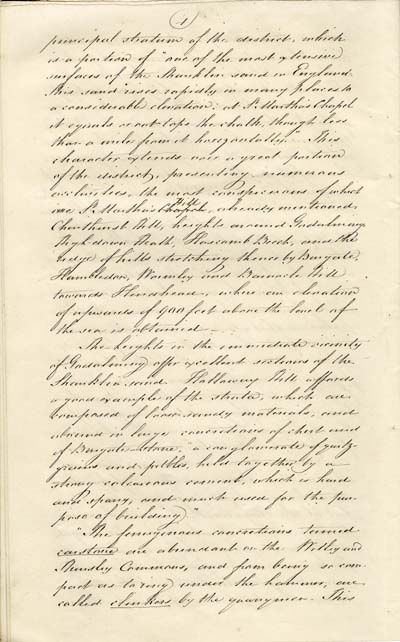 4
principal stratum of the district, which
is a portion of "one of the most extensive
surfaces of the Shanklin sand in England.
This sand rises rapidly in many places to
a considerable elevation; at St. Martha's Chapel
it equals or out tops the chalk, though less
than a mile from it horizontally." This
character extends over a great portion
of the district, presenting numerous
acclivities, the most conspicuous of which
are St. Martha's Chapel Hill, already mentioned,
Chart hurst Hill, heights around Godalming,
Highdown Heath, Hascomb Beech, and the
ridge of hills stretching thence by Bargate,
Hambledon, Wormley and Bannacle Hill
towards Hindhead, where an elevation
of upwards of 900 feet above the level of
the sea is obtained.
The heights in the immediate vicinity
of Godalming offer excellent sections of the
Shanklin sand. Holloway Hill affords
a good example of the strata, which are
composed of loose sandy materials, and
abound in large concretions of chert and
of Bargate-stone, "a conglomerate of quartz-
grains and pebbles, held together by a
strong calcareous cement, which is hard
and sparry, and much used for the pur-
pose of building."
"The ferruginous concretions termed
carstone are abundant on the Witley and
Thursley Commons, and from being so com-
pact as to ring under the hammer, are
called clinkers by the quarrymen. This